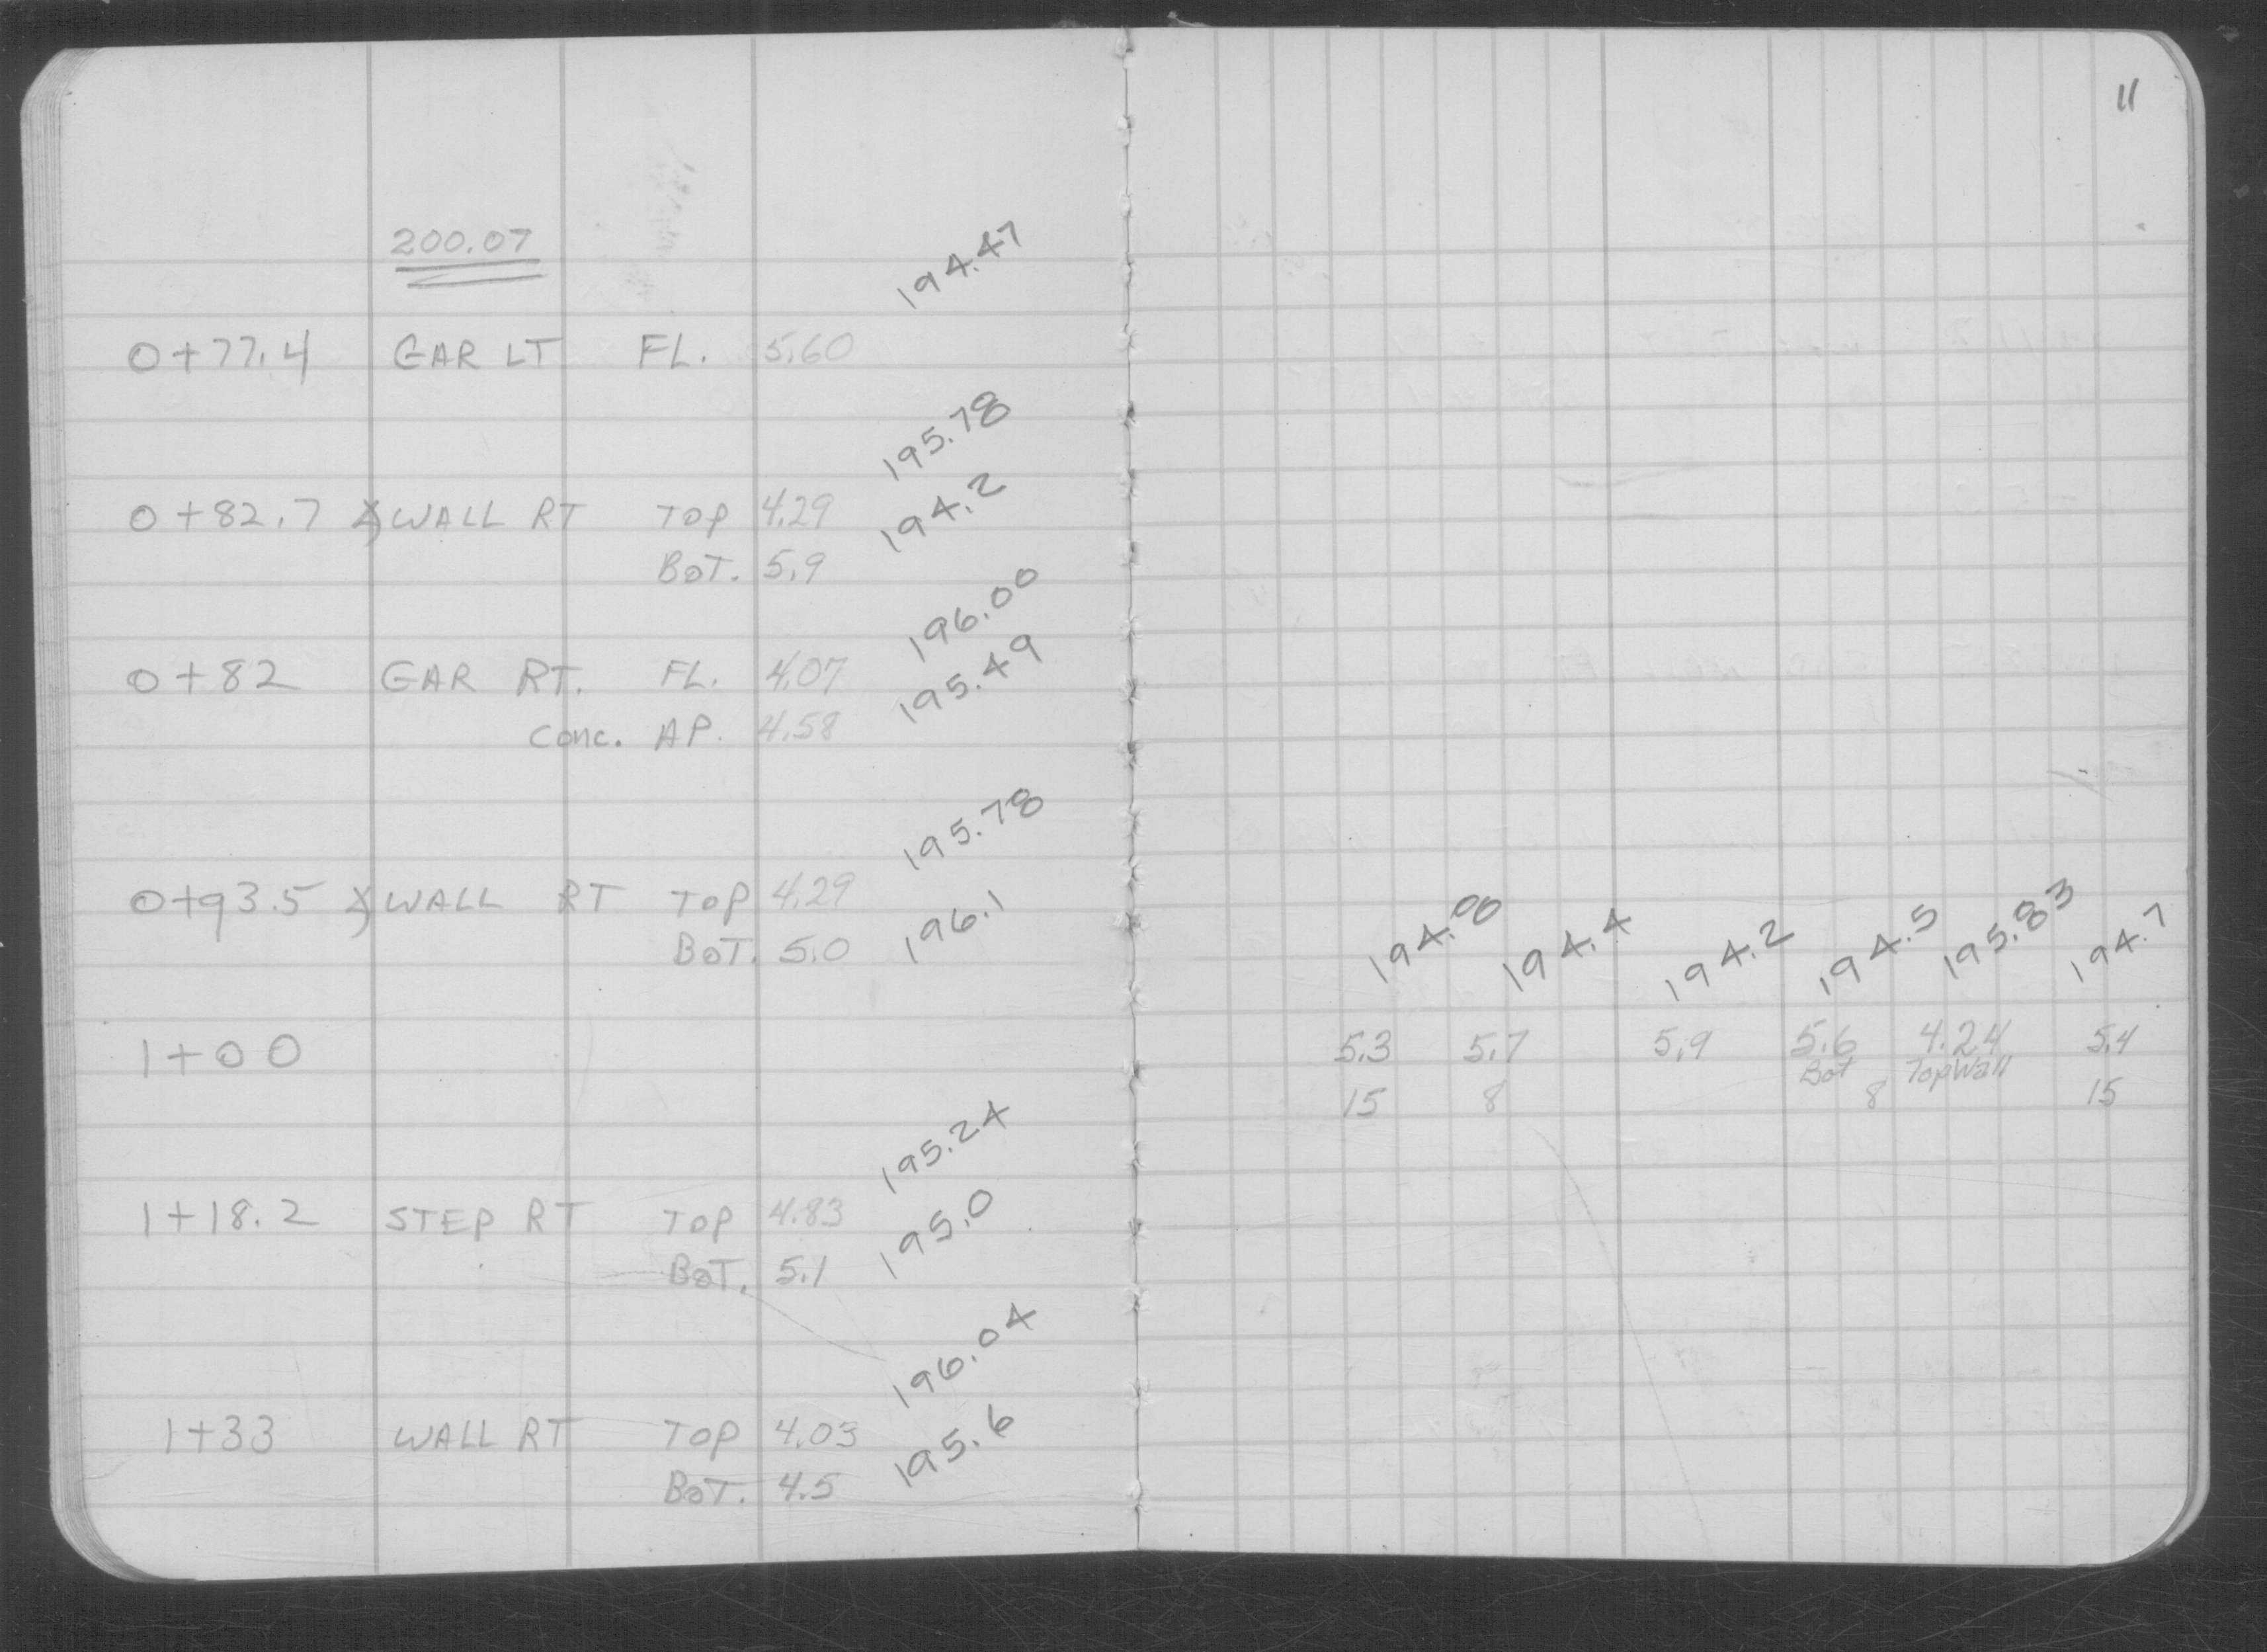 11
200.07
194.47
0+77.4 GAR LT FL. 5.60
195.78
0+82.7 WALL RT TOP 4.29
194.2
BOT. 5.9
196.00
0+82 GAR RT. FL. 4.07
195.49
Conc. AP. 4.58
195.78
0+93.5 WALL RT TOP 4.29
196.1
BOT. 5.0
194.8 194.4 194.2 194.5 195.83 194.7
1+00 5.3 5.7 5.9 5.6 4.24 5.4
Bot Top Wall
15 8 8 15
195.24
1+18.2 STEP RT TOP 4.83
195.0
BOT. 5.1
196.04
1+33 WALL RT TOP 4.03
195.6
BOT. 4.5